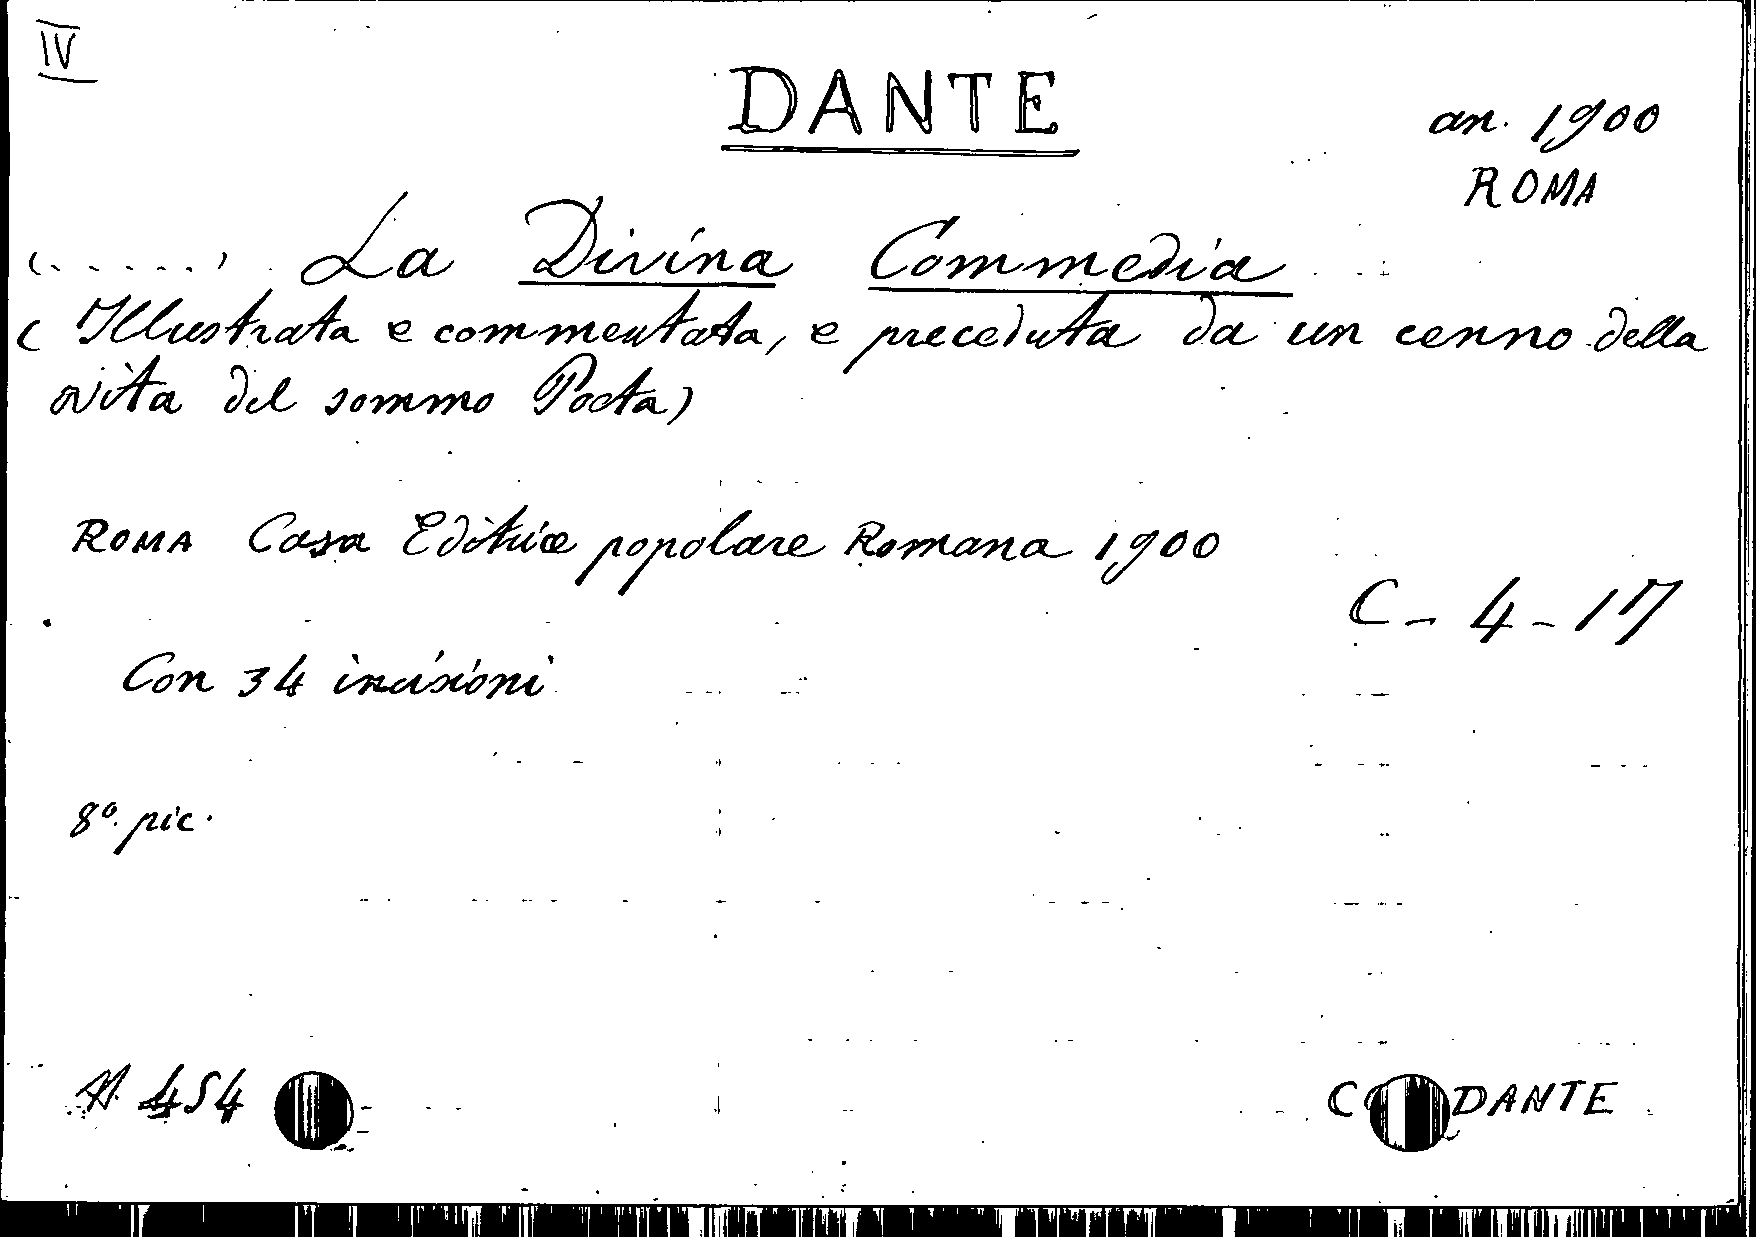 IV
DANTE
an. 1900
ROMA
(. . . . . .) La Divina Commedia
( Illustrata e commentata, e preceduta da un cenno della
vita del sommo Poeta)
ROMA Casa Editrice popolare Romana 1900
C - 4 - 17
Con 34 incisioni
8º. pic.
454
DANTE